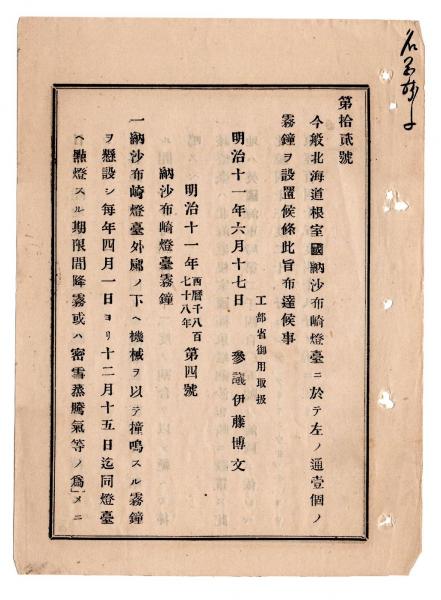 第拾貳號
今般北海道根室國納沙布崎燈臺ニ於テ左ノ通壹個ノ
霧鐘ヲ設置候條此旨布達候事
工部省御用取扱
明治十一年六月十七日　參議伊藤博文
明治十一年西曆千八百七十八年第四號
納沙布崎燈臺霧鐘
一納沙布崎燈臺外廓ノ下ヘ機械ヲ以テ撞鳴スル霧鐘
ヲ懸設シ每年四月一日ヨリ十二月十五日迄同燈臺
ヘ點燈スル期限間降霧或ハ密雪蒸騰氣等ノ爲メニ